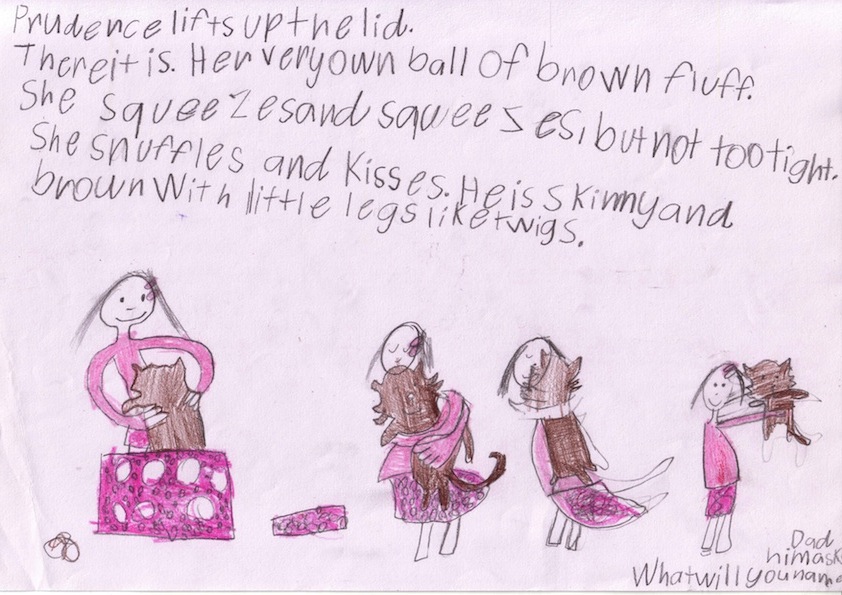 Prudence lifts up the lid.
There it is. Her very own ball of brown fluff.
She squeezes and squeeses, but not too tight.
She snuffles and kisses. He is skinny and
brown with little legs like twigs.
Dad
him ask
What will you nam